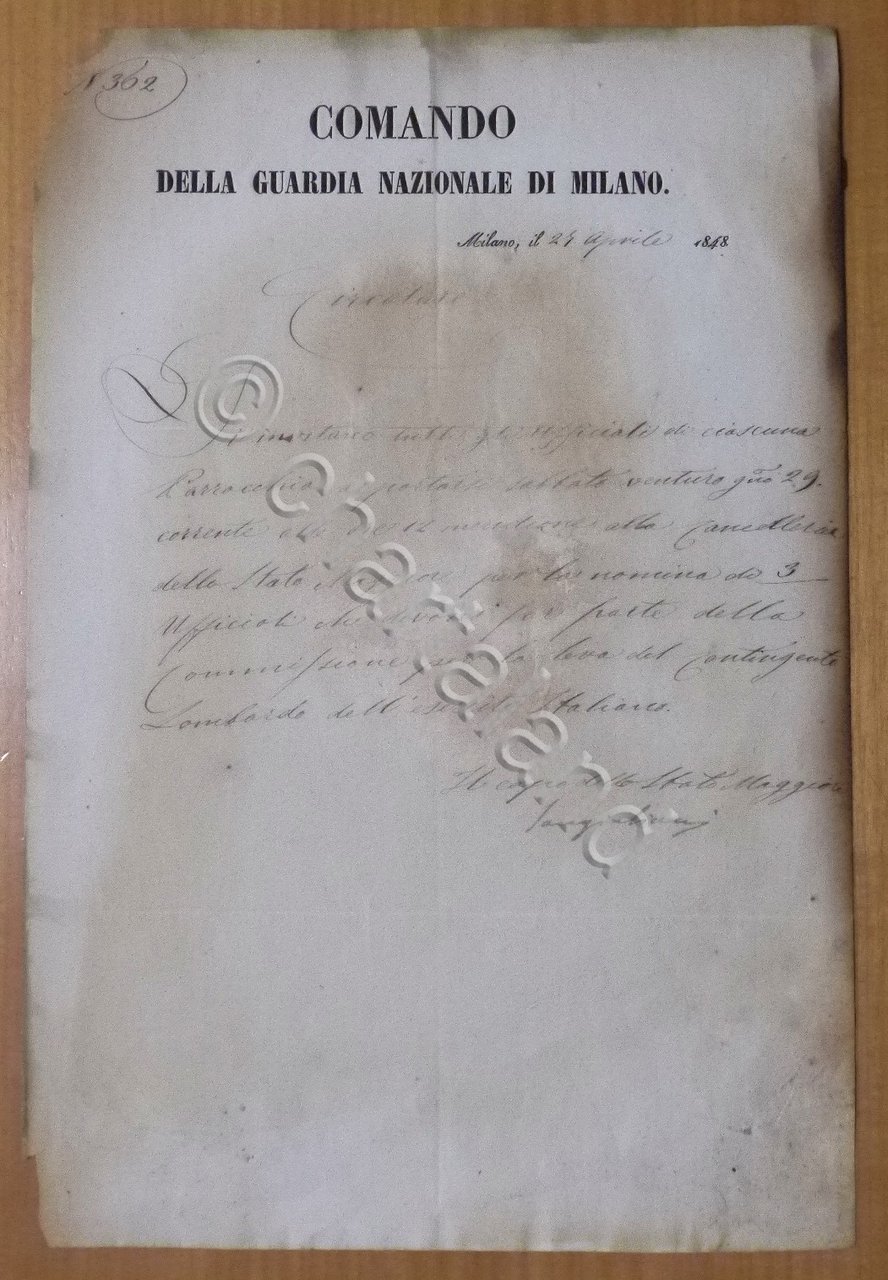 N 362
COMANDO
DELLA GUARDIA NAZIONALE DI MILANO.
Milano, il Aprile 1848
Circolare
S'invitano tutti gli Ufficiali di ciascuna
Parrocchia a portarsi sabbato venturo gno 29.
corrente alle ore 12 meridiane alla Cancelleria
dello Stato Maggiore per la nomina di 3
Ufficiali che devono far parte della
Commissione per la leva del Contingente
Lombardo dell'esercito Italiano.
Il capo dello Stato Maggiore
© Cartariana